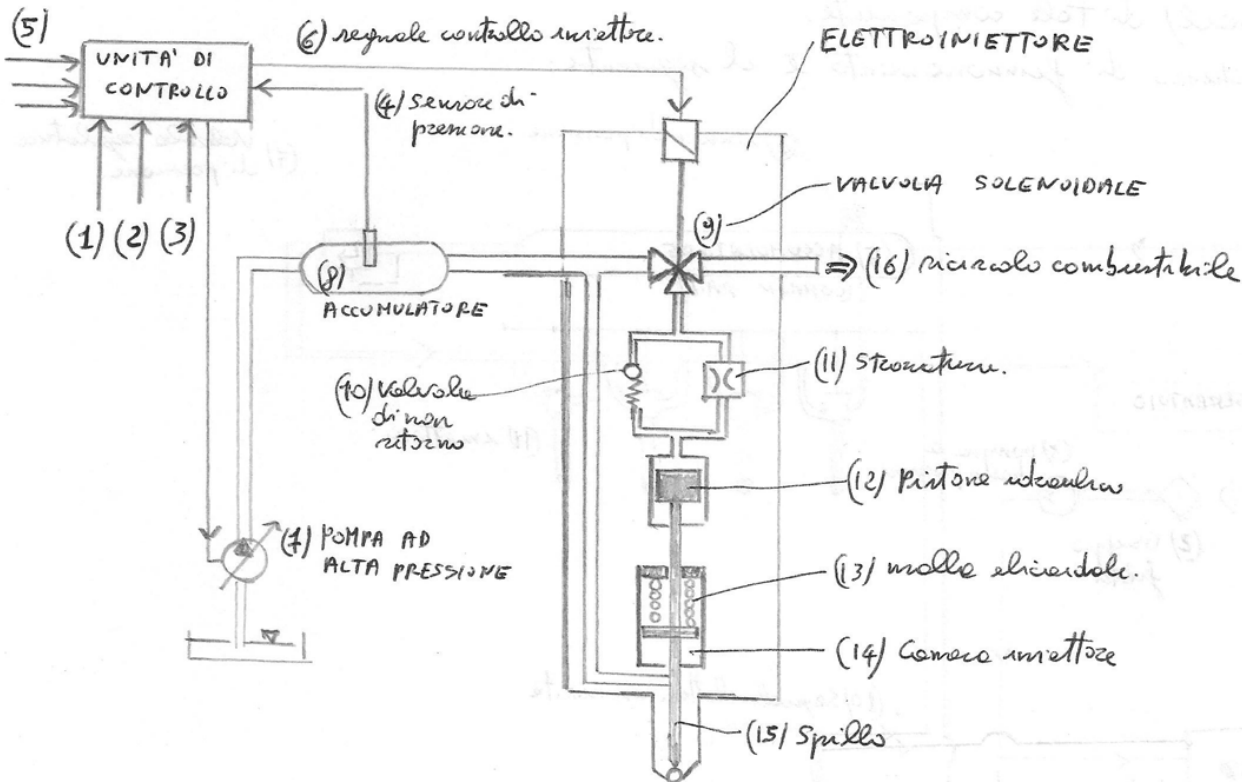 (5)
UNITA' DI
CONTROLLO
(6) segnale controllo iniettore.
ELETTROINIETTORE
(4) sensore di
pressione.
(1) (2) (3)
VALVOLA SOLENOIDALE
(9)
(8)
ACCUMULATORE
⇒ (16) ricircolo combustibile
(10) valvola
di non
ritorno
(11) Strozzatura.
(12) Pistone idraulico
(7) POMPA AD
ALTA PRESSIONE
(13) molla elicoidale.
(14) Camera iniettore
(15) Spillo